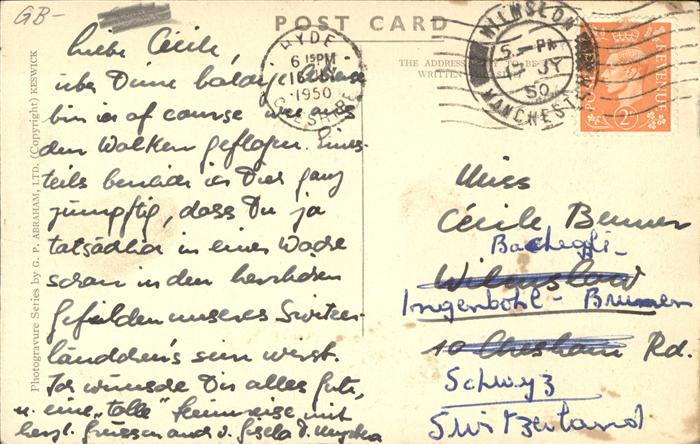 GB-
POST CARD
THE ADDRESS TO BE
WRITTEN
HYDE
6 15 PM
1950
CHESHIRE
WILMSLOW
5 - PM
17 JY
50
MANCHESTER
POSTAGE
REVENUE
2D
Photogravure Series by G. P. ABRAHAM, LTD. (Copyright) KESWICK
Liebe Cécile,
über Deine
bin ich of course wie aus
den Wolken geflogen. Eines-
teils beneide ich Dich ganz
zünftig, dass Du ja
tatsächlich in einer Woche
schon in den herrlichen
Gefilden unseres Switzer-
ländchens sein wirst.
Ich wünsche Dir alles Gute,
u. eine "tolle" Heimreise mit
herzl. Grüssen and v. Gisela
Miss
Cécile
Wilmslow
Ingenbohl - Brunnen
10 Chesham Rd.
Schwyz
Switzerland